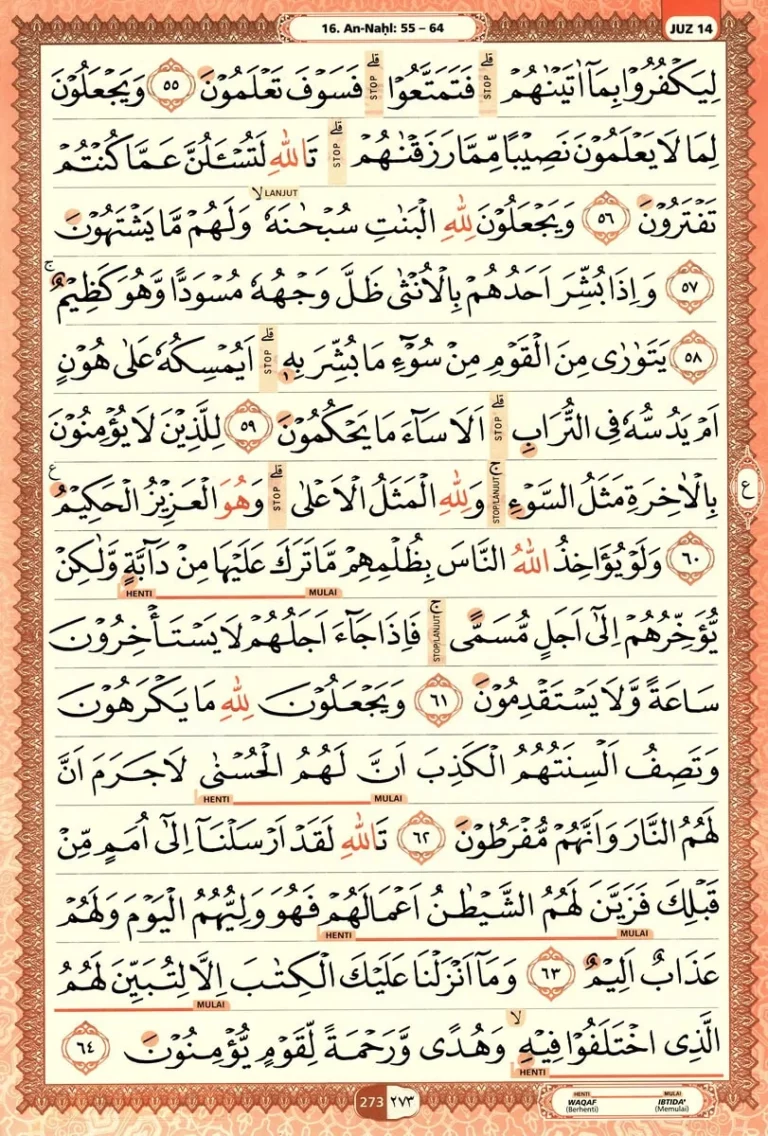 16. An-Naḥl: 55 – 64
JUZ 14
لِيَكْفُرُوْا بِمَآ اٰتَيْنٰهُمْۗ فَتَمَتَّعُوْاۗ فَسَوْفَ تَعْلَمُوْنَ ٥٥ وَيَجْعَلُوْنَ
STOP STOP
لِمَا لَا يَعْلَمُوْنَ نَصِيْبًا مِّمَّا رَزَقْنٰهُمْۗ تَاللّٰهِ لَتُسْـَٔلُنَّ عَمَّا كُنْتُمْ
STOP
LANJUT
تَفْتَرُوْنَ ٥٦ وَيَجْعَلُوْنَ لِلّٰهِ الْبَنٰتِ سُبْحٰنَهٗۙ وَلَهُمْ مَّا يَشْتَهُوْنَ
٥٧ وَاِذَا بُشِّرَ اَحَدُهُمْ بِالْاُنْثٰى ظَلَّ وَجْهُهٗ مُسْوَدًّا وَّهُوَ كَظِيْمٌۚ
٥٨ يَتَوٰرٰى مِنَ الْقَوْمِ مِنْ سُوْۤءِ مَا بُشِّرَ بِهٖۗ اَيُمْسِكُهٗ عَلٰى هُوْنٍ
STOP
اَمْ يَدُسُّهٗ فِى التُّرَابِۗ اَلَا سَاۤءَ مَا يَحْكُمُوْنَ ٥٩ لِلَّذِيْنَ لَا يُؤْمِنُوْنَ
STOP
بِالْاٰخِرَةِ مَثَلُ السَّوْءِۚ وَلِلّٰهِ الْمَثَلُ الْاَعْلٰىۗ وَهُوَ الْعَزِيْزُ الْحَكِيْمُ ع
STOP/LANJUT STOP
ع
٦٠ وَلَوْ يُؤَاخِذُ اللّٰهُ النَّاسَ بِظُلْمِهِمْ مَّا تَرَكَ عَلَيْهَا مِنْ دَاۤبَّةٍ وَّلٰكِنْ
MULAI HENTI
يُّؤَخِّرُهُمْ اِلٰٓى اَجَلٍ مُّسَمًّىۚ فَاِذَا جَاۤءَ اَجَلُهُمْ لَا يَسْتَأْخِرُوْنَ
STOP/LANJUT
سَاعَةً وَّلَا يَسْتَقْدِمُوْنَ ٦١ وَيَجْعَلُوْنَ لِلّٰهِ مَا يَكْرَهُوْنَ
وَتَصِفُ اَلْسِنَتُهُمُ الْكَذِبَ اَنَّ لَهُمُ الْحُسْنٰى لَا جَرَمَ اَنَّ
MULAI HENTI
لَهُمُ النَّارَ وَاَنَّهُمْ مُّفْرَطُوْنَ ٦٢ تَاللّٰهِ لَقَدْ اَرْسَلْنَآ اِلٰٓى اُمَمٍ مِّنْ
قَبْلِكَ فَزَيَّنَ لَهُمُ الشَّيْطٰنُ اَعْمَالَهُمْ فَهُوَ وَلِيُّهُمُ الْيَوْمَ وَلَهُمْ
MULAI HENTI
عَذَابٌ اَلِيْمٌ ٦٣ وَمَآ اَنْزَلْنَا عَلَيْكَ الْكِتٰبَ اِلَّا لِتُبَيِّنَ لَهُمُ
MULAI
الَّذِى اخْتَلَفُوْا فِيْهِۙ وَهُدًى وَّرَحْمَةً لِّقَوْمٍ يُّؤْمِنُوْنَ ٦٤
HENTI
273 ٢٧٣
HENTI MULAI
WAQAF IBTIDA'
(Berhenti) (Memulai)